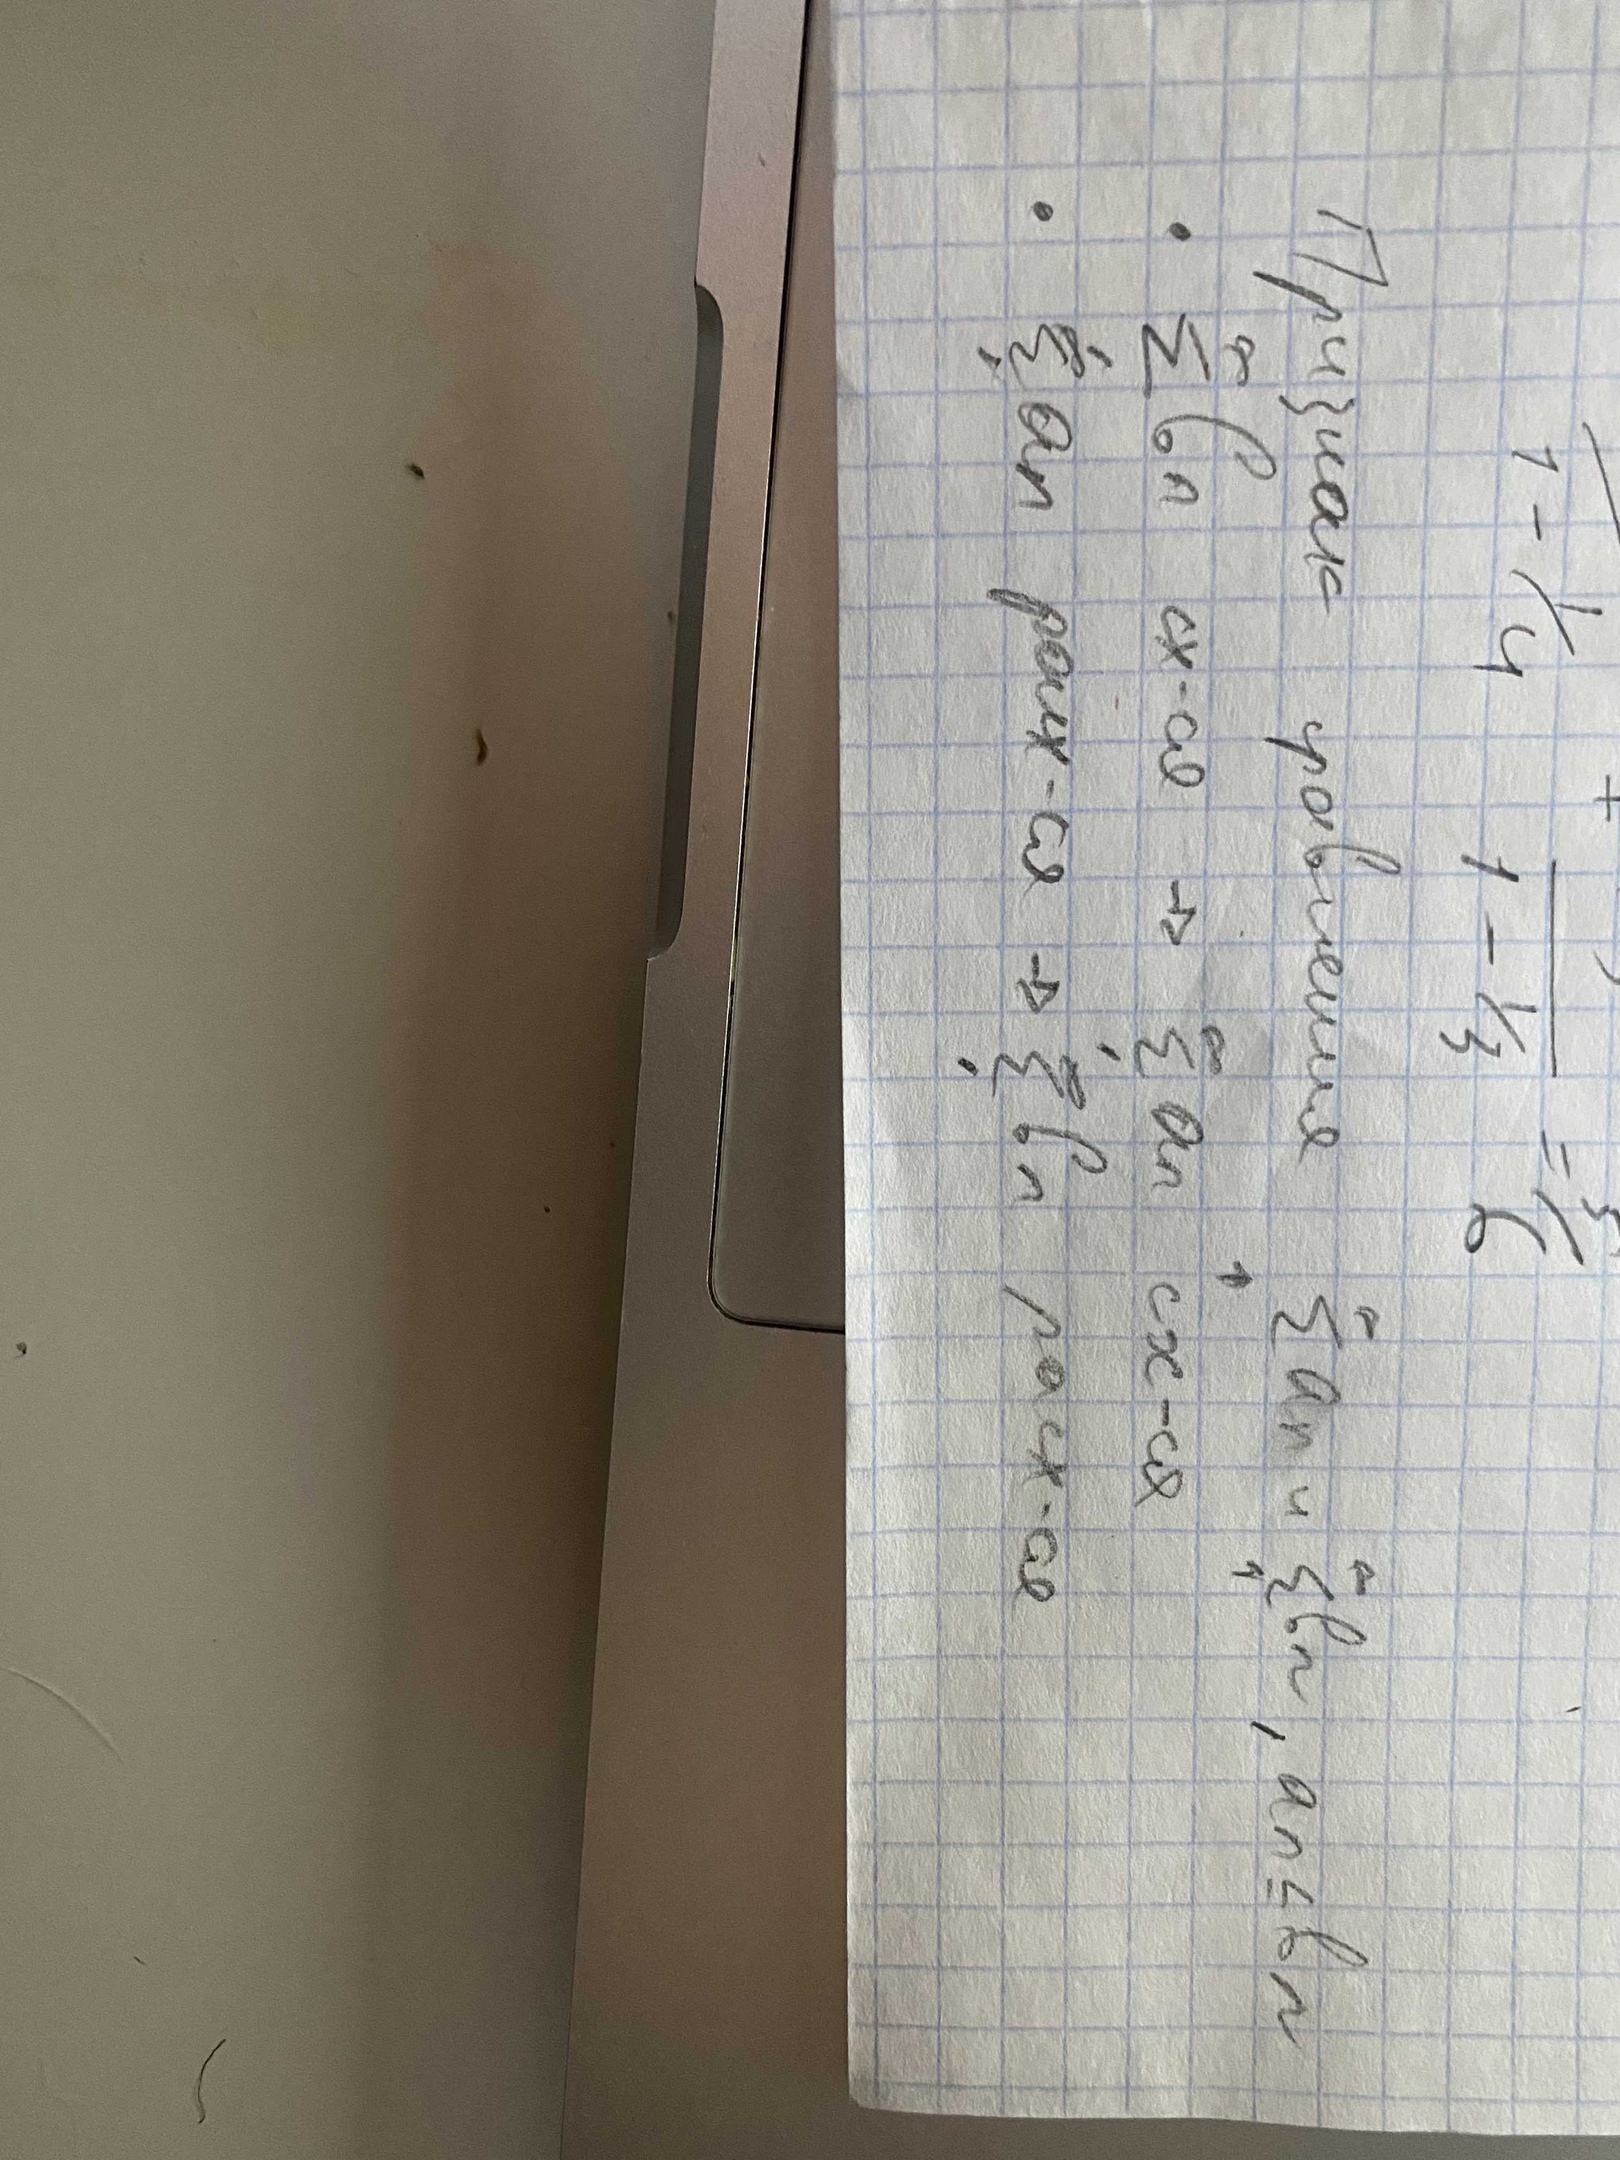 1 - 1/4 + 1 - 1/3 = 5/6
Признак сравнения ∞ Σ an и ∞ Σ bn, an ≤ bn
1 1
• ∞ Σ 1 bn сх-ся → ∞ Σ 1 an сх-ся
• ∞ Σ 1 an расх-ся → ∞ Σ 1 bn расх-ся